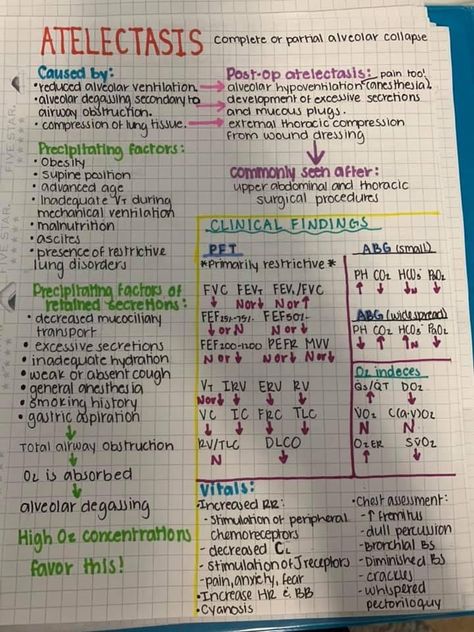 ATELECTASIS complete or partial alveolar collapse
Caused by:
• reduced alveolar ventilation.
• alveolar degassing secondary to
airway obstruction.
• compression of lung tissue.
Post-op atelectasis: pain too!
alveolar hypoventilation (anesthesia).
development of excessive secretions
and mucous plugs.
external thoracic compression
from wound dressing
Commonly seen after:
upper abdominal and thoracic
surgical procedures
Precipitating factors:
• Obesity
• Supine position
• advanced age
• Inadequate VT during
mechanical ventilation
• malnutrition
• ascites
• presence of restrictive
lung disorders
Precipitating factors of
retained secretions:
• decreased mucociliary
transport
• excessive secretions
• inadequate hydration
• weak or absent cough
• general anesthesia
• smoking history
• gastric aspiration
↓
Total airway obstruction
↓
O2 is absorbed
↓
alveolar degassing
High O2 concentrations
favor this!
CLINICAL FINDINGS
PFT
*Primarily restrictive*
FVC FEVT FEV1/FVC
↓ Nor↓ Nor↑
FEF25%-75% FEF50%
↓ or N ↓ or N
FEF200-1200 PEFR MVV
N or ↓ N or ↓ N or ↓
VT IRV ERV RV
Nor↓ ↓ ↓ ↓
VC IC FRC TLC
↓ ↓ ↓ ↓
RV/TLC DLCO
N ↓
ABG (small)
PH CO2 HCO3 PaO2
↑ ↓ ↓N ↓
ABG (widespread)
PH CO2 HCO3 PaO2
↓ ↑ ↑N ↓
O2 indeces
QS/QT DO2
↑ ↓
VO2 C(a-v)O2
N N
O2ER SVO2
↑ ↓
Vitals:
• Increased RR:
- stimulation of peripheral
chemoreceptors
- decreased CL
- stimulation of J receptors
- pain, anxiety, fear
• Increase HR & BB
• Cyanosis
• Chest assessment:
- ↑ fremitus
- dull percussion
- Bronchial BS
- Diminished BS
- crackles
- whispered
pectoriloquy
FIVE STAR.
FIVE STAR.